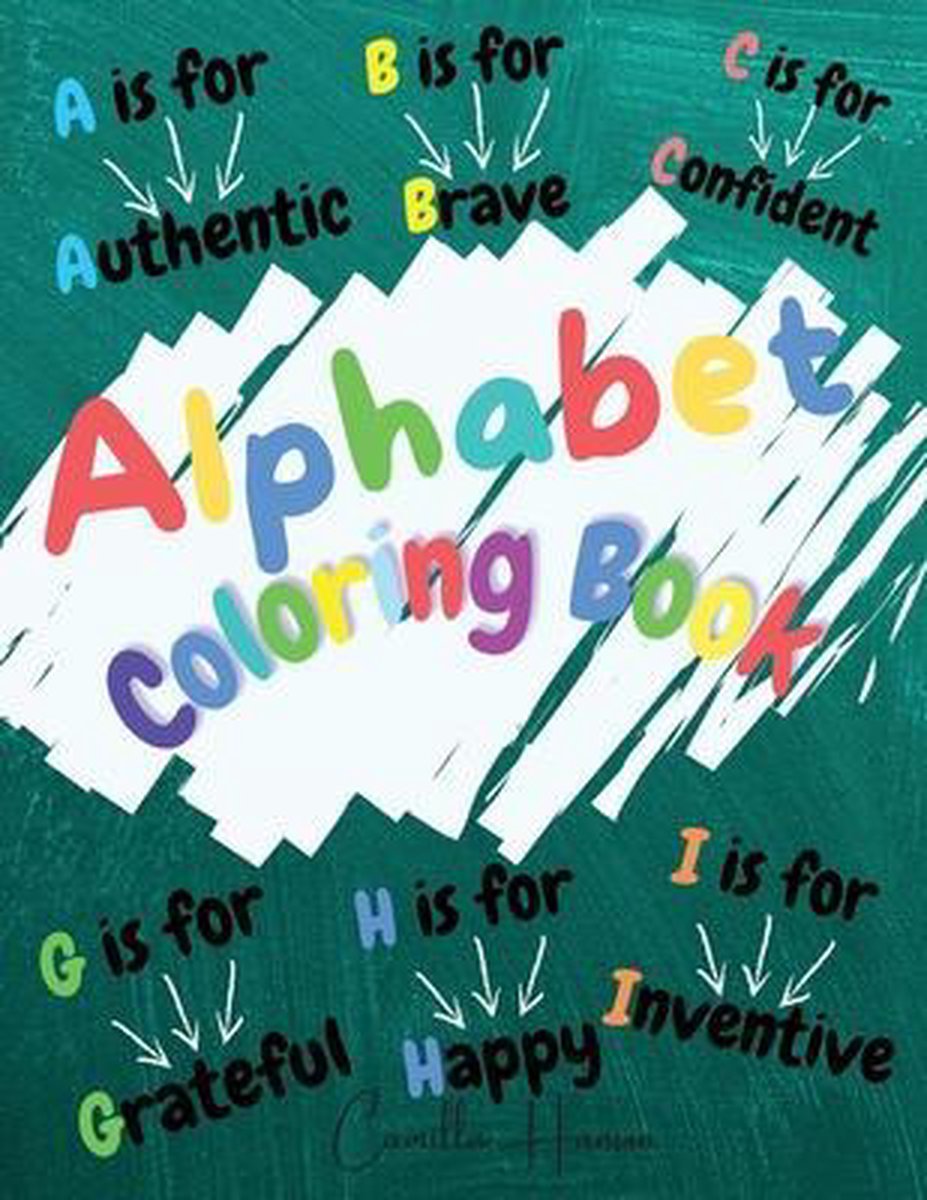 A is for
Authentic
B is for
Brave
C is for
Confident
Alphabet
Coloring Book
G is for
Grateful
H is for
Happy
I is for
Inventive
Camilla